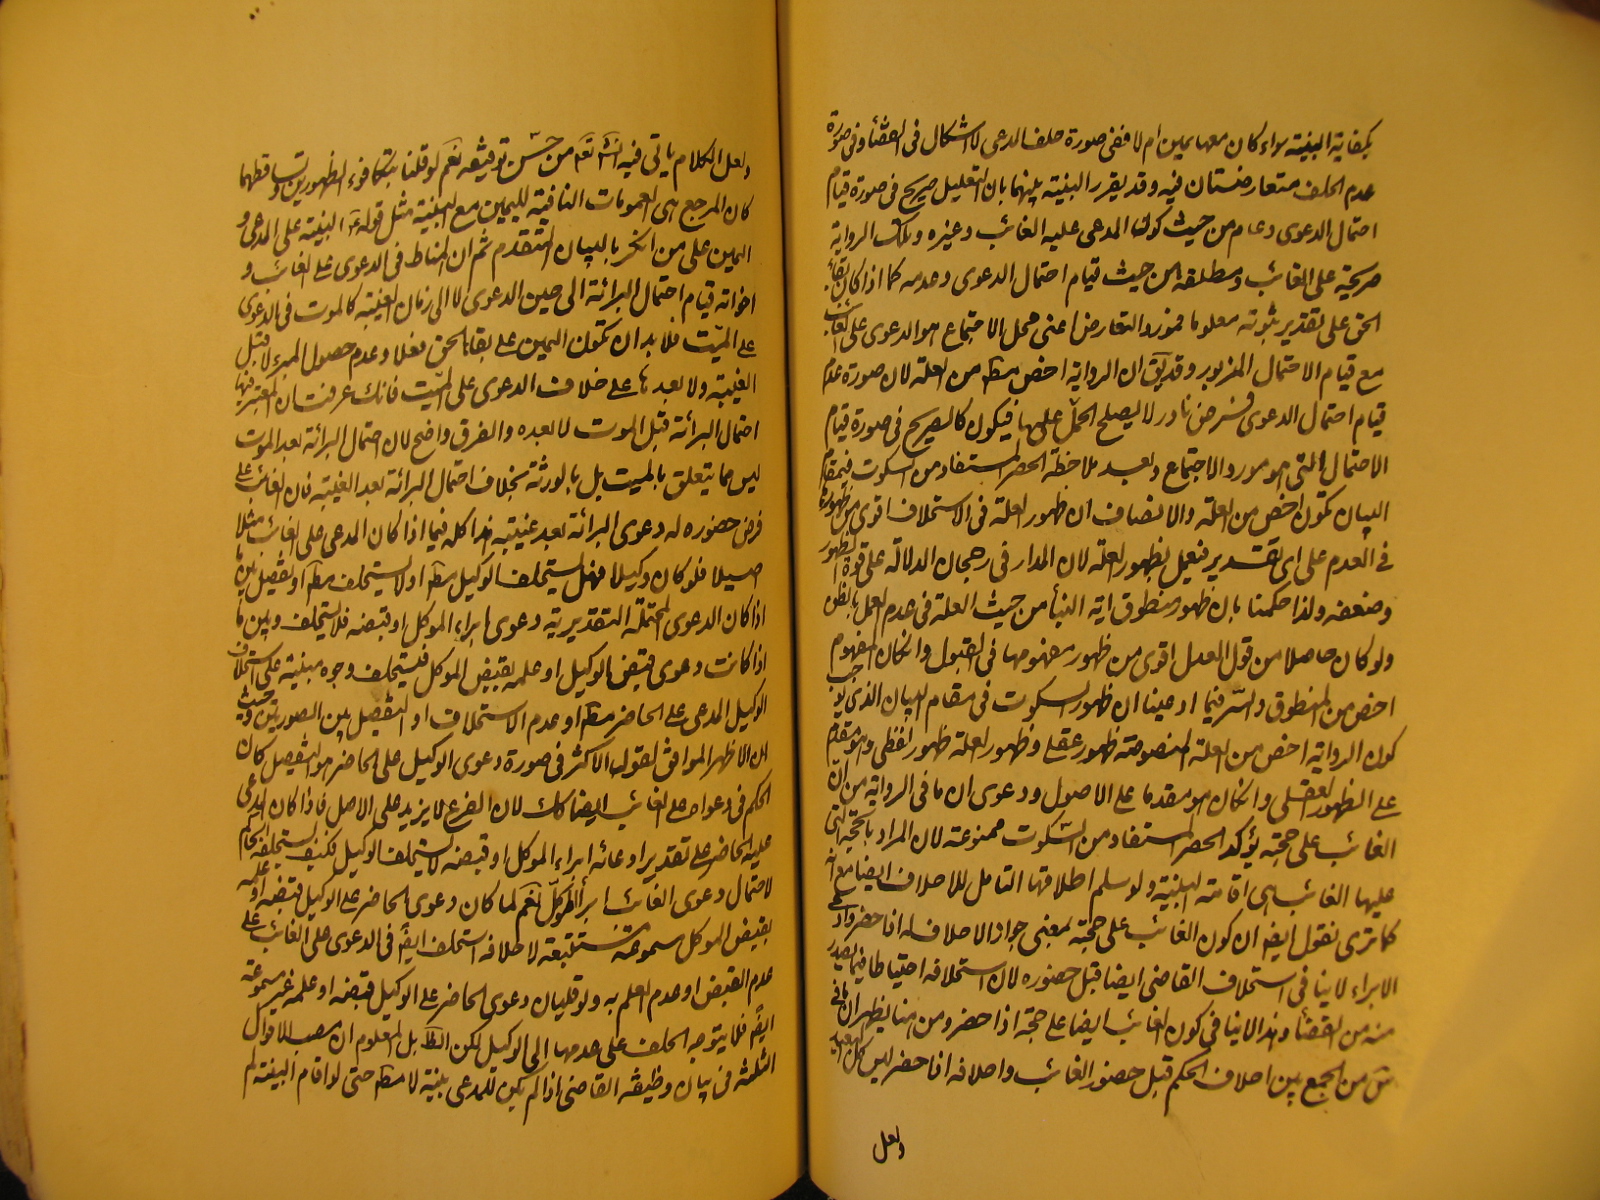 بكفاية البينة سواء كان معها يمين ام لا ففى صورة حلف المدعى لا اشكال فى القضاء وفى صورة
عدم الحلف متعارضتان فيه وقد يقرر البينة بينهما بان التعليل صريح فى صورة قيام
احتمال الدعوى وعام من حيث كون المدعى عليه الغائب وغيره وتلك الرواية
صريحة على الغائب ومطلقة من حيث قيام احتمال الدعوى وعدمه كما اذا كان بقاء
الحق على تقدير ثبوته معلوما فمورد التعارض اعنى محل الاجتماع هو الدعوى على الغائب
مع قيام الاحتمال المزبور وقد يق ان الرواية اخص مط من العلة لان صورة عدم
قيام احتمال الدعوى فرض نادر لا يصلح الحمل عليها فيكون كالصريح فى صورة قيام
الاحتمال التى هو مورد الاجتماع وبعد ملاحظة الحصر المستفاد من السكوت فى مقام
البيان تكون اخص من العلة والانصاف ان ظهور العلة فى الاستحلاف اقوى من ظهوره
فى العدم على اى تقدير فنعمل بظهور العلة لان المدار فى رجحان الدلالة على قوة الظهور
وضعفه ولذا حكمنا بان ظهور منطوق اية النبأ من حيث العلة فى عدم العمل بالظن
ولو كان حاصلا من قول العدل اقوى من ظهور مفهومها فى القبول وان كان المفهوم
اخص من المنطوق والسر فيما ادعينا ان ظهور السكوت فى مقام البيان الذى يوجب
كون الرواية اخص من العلة المنصوصة ظهور عقلى وظهور العلة ظهور لفظى وهو مقدم
على الظهور العقلى وان كان هو مقدما على الاصول ودعوى ان ما فى الرواية من ان
الغائب على حجته يؤكد الحصر المستفاد من السكوت ممنوعة لان المراد بالحجة التى
عليها الغائب هى اقامة البينة ولو سلم اطلاقها الشامل للاحلاف ايضا مع انه
كما ترى نقول ايض ان كون الغائب على حجته بمعنى جواز الاحلاف له اذا حضر وادعى
الابراء لا ينافى استحلاف القاضى ايضا قبل حضوره لان استحلافه احتياطا فيما يصدر
منه من القضاء وهذا لا ينافى كون الغائب ايضا على حجته اذا حضر ومن هنا يظهر ان ما فى
من الجمع بين احلاف الحكم قبل حضور الغائب واحلافه اذا حضر ليس كل البعيد
ولعل
ولعل الكلام ياتى فيه انشاء الله تعالى من حسن توفيقه نعم لو قلنا بتكافوء الظهورين وتساقطهما
كان المرجع هى العمومات النافية لليمين مع البينة مثل قوله البينة على المدعى و
اليمين على من انكر بالبيان المتقدم ثم ان المناط فى الدعوى على الغائب و
اخواته قيام احتمال البرائة الى حين الدعوى لا الى زمان الغيبة كالموت فى الدعوى
على الميت فلا بد ان تكون اليمين على بقاء الحق فعلا وعدم حصول المبرء لا قبل
الغيبة ولا بعدها على خلاف الدعوى على الميت فانك عرفت ان المعتبر فيها
احتمال البرائة قبل الموت لا بعده والفرق واضح لان احتمال البرائة بعد الموت
ليس مما يتعلق بالميت بل بالورثة بخلاف احتمال البرائة بعد الغيبة فان الغائب على
فرض حضوره له دعوى البرائة بعد غيبته هذا كله فيما اذا كان المدعى على الغائب مثلا
اصيلا فلو كان وكيلا فهل يستحلف الوكيل مط او لا يستحلف مط او يفصل بين ما
اذا كان الدعوى المحتملة التقديرية دعوى ابراء الموكل او قبضه فلا يستحلف وبين ما
اذا كانت دعوى قبض الوكيل او علمه بقبض الموكل فيستحلف وجوه مبنية على استحلاف
الوكيل المدعى على الحاضر مط او عدم الاستحلاف او التفصيل بين الصورتين وحيث
ان الاظهر الموافق لقول الاكثر فى صورة دعوى الوكيل على الحاضر هو التفصيل كان
الحكم فى دعواه على الغائب ايضا كك لان الفرع لا يزيد على الاصل فاذا كان المدعى
عليه الحاضر على تقدير ادعائه ابراء الموكل او قبضه لا يستحلف الوكيل فكيف يستحلفه الحاكم
لاحتمال دعوى الغائب ابراء الموكل نعم لما كان دعوى الحاضر على الوكيل قبضه او علمه
بقبض الموكل مسموعة مستتبعة لاحلافه استحلف ايض فى الدعوى على الغائب على
عدم القبض او عدم العلم به ولو قلنا بان دعوى الحاضر على الوكيل قبضه او علمه غير مسموعة
ايض فلا يتوجه الحلف على عدمها الى الوكيل لكن الظ بل المعلوم ان مصب الاقوال
الثلثة فى بيان وظيفة القاضى اذا لم يكن للمدعى بينة لا مط حتى لو اقام البينة لم